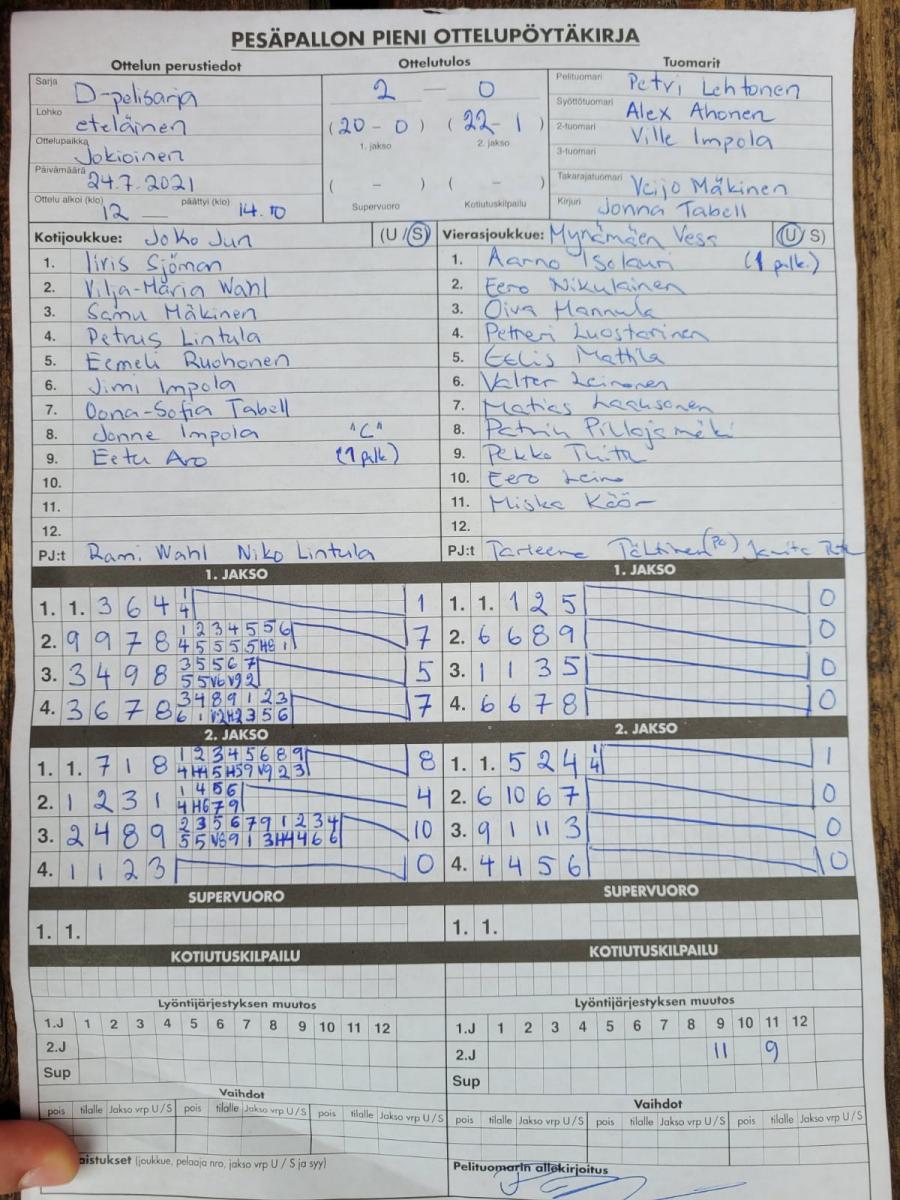 PESÄPALLON PIENI OTTELUPÖYTÄKIRJA
Ottelun perustiedot
Sarja D-pelisarja
Lohko eteläinen
Ottelupaikka Jokioinen
Päivämäärä 24.7.2021
Ottelu alkoi (klo) 12 — päättyi (klo) 14.10
Ottelutulos
2 — 0
(20 - 0) (22 - 1)
1. jakso 2. jakso
( - ) ( - )
Supervuoro Kotiutuskilpailu
Tuomarit
Pelituomari Petri Lehtonen
Syöttötuomari Alex Ahonen
2-tuomari Ville Impola
3-tuomari
Takarajatuomari Veijo Mäkinen
Kirjuri Jonna Tabell
Kotijoukkue: Joko Jun (U/S)
1. Iiris Sjöman
2. Vilja-Maria Wahl
3. Samu Mäkinen
4. Petrus Lintula
5. Eemeli Ruohonen
6. Jimi Impola
7. Oona-Sofia Tabell
8. Jonne Impola "C"
9. Eetu Aro (1 palk.)
10.
11.
12.
PJ:t Rami Wahl Niko Lintula
Vierasjoukkue: Mynämäen Vesa (U/S)
1. Aarno Isolauri (1 palk.)
2. Eero Nikulainen
3. Oiva Hannula
4. Petteri Luostarinen
5. Eelis Mattila
6. Valter Leinonen
7. Matias Laaksonen
8. Patrik
9. Pekko
10. Eero Leino
11. Miska
12.
PJ:t
1. JAKSO
1. 1. 3 6 4 1 4 1
2. 9 9 7 8 1 2 3 4 5 5 6 7
4 5 5 5 5 H6 1
3. 3 4 9 8 3 5 5 6 7 5
5 5 V6 V9 2
4. 3 6 7 8 3 4 8 9 1 2 3 7
6 1 V2 H2 3 5 6
1. JAKSO
1. 1. 1 2 5 0
2. 6 6 8 9 0
3. 1 1 3 5 0
4. 6 6 7 8 0
2. JAKSO
1. 1. 7 1 8 1 2 3 4 5 6 8 9 8
4 H4 5 H5 9 V9 2 3
2. 1 2 3 1 1 4 5 6 4
4 H6 7 9
3. 2 4 8 9 2 3 5 6 7 9 1 2 3 4 10
5 5 V6 9 1 3 H4 4 6 6
4. 1 1 2 3 0
2. JAKSO
1. 1. 5 2 4 1 4 1
2. 6 10 6 7 0
3. 9 1 11 3 0
4. 4 4 5 6 0
SUPERVUORO
1. 1.
SUPERVUORO
1. 1.
KOTIUTUSKILPAILU
KOTIUTUSKILPAILU
Lyöntijärjestyksen muutos
1.J 1 2 3 4 5 6 7 8 9 10 11 12
2.J
Sup
Lyöntijärjestyksen muutos
1.J 1 2 3 4 5 6 7 8 9 10 11 12
2.J 11 9
Sup
Vaihdot
pois tilalle Jakso vrp U / S pois tilalle Jakso vrp U / S pois tilalle Jakso vrp U / S
Vaihdot
pois tilalle Jakso vrp U / S pois tilalle Jakso vrp U / S pois tilalle Jakso vrp U / S
aistukset (joukkue, pelaaja nro, jakso vrp U / S ja syy)
Pelituomarin allekirjoitus